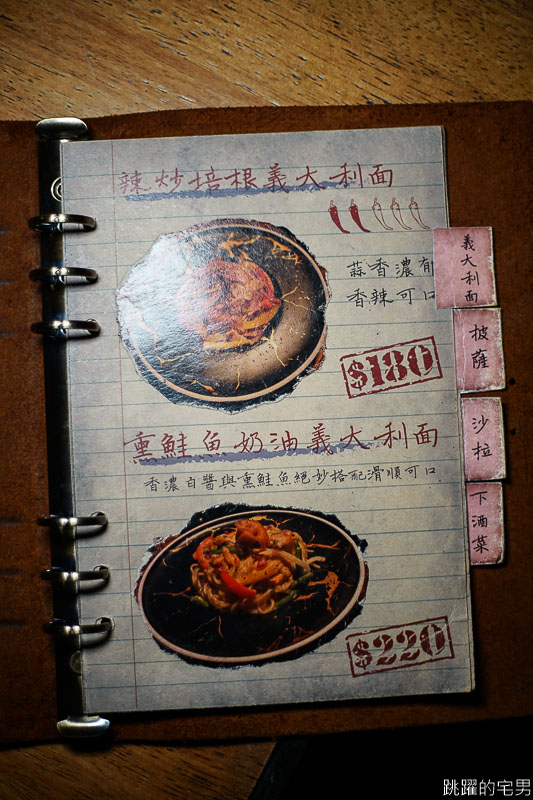 辣炒培根義大利面
蒜香濃郁
香辣可口
$180
熏鮭魚奶油義大利面
香濃白醬與熏鮭魚絕妙搭配滑順可口
$220
義大利面
披薩
沙拉
下酒菜
跳躍的宅男